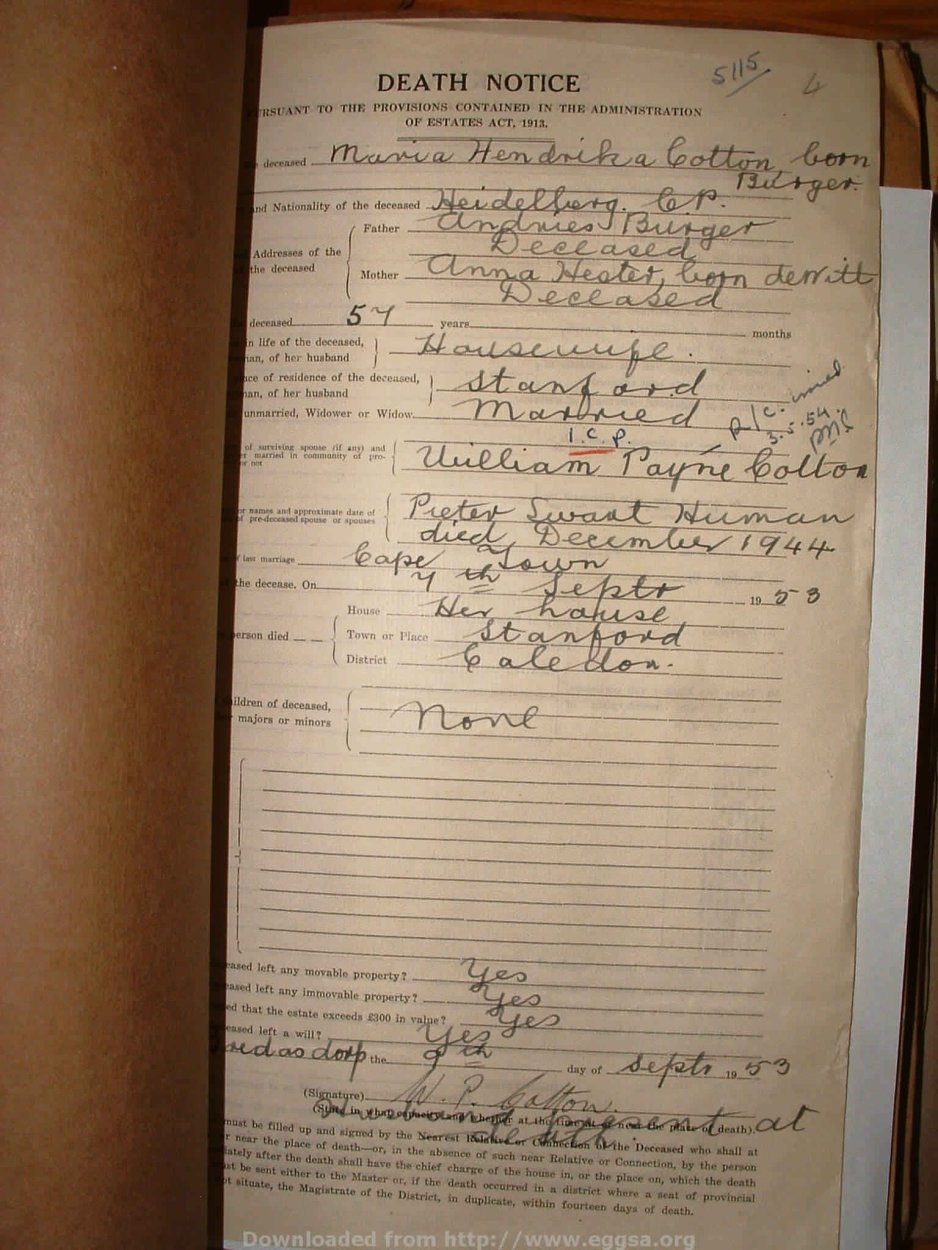 5115
4
DEATH NOTICE
PURSUANT TO THE PROVISIONS CONTAINED IN THE ADMINISTRATION
OF ESTATES ACT, 1913.
deceased Maria Hendrika Cotton, born
Burger.
and Nationality of the deceased Heidelberg. C.P.
Father Andries Burger
Deceased
Addresses of the
the deceased
Mother Anna Hester, born deWitt
Deceased
deceased 57 years months
in life of the deceased,
man, of her husband Housewife.
ce of residence of the deceased,
man, of her husband Stanford
unmarried, Widower or Widow Married
3.5.54.
I.C.P.
of surviving spouse (if any) and
er married in community of pro-
or not
William Payne Cotton
or names and approximate date of
of pre-deceased spouse or spouses
Pieter Swart Human
died December 1944
of last marriage Cape Town
the decease. On 7th Septr 1953
House Her house
person died Town or Place Stanford
District Caledon.
children of deceased,
majors or minors None
eased left any movable property? Yes
eased left any immovable property? Yes
ed that the estate exceeds £300 in value? Yes
eased left a will? Yes
redasdorp the 9th day of Septr 1953
(Signature) W. P. Cotton.
(State in what capacity and whether at the time at or near the place of death).
present at
must be filled up and signed by the Nearest Relative or Connection of the Deceased who shall at
r near the place of death—or, in the absence of such near Relative or Connection, by the person
iately after the death shall have the chief charge of the house in, or the place on, which the death
ust be sent either to the Master or, if the death occurred in a district where a seat of provincial
ot situate, the Magistrate of the District, in duplicate, within fourteen days of death.
Downloaded from http://www.eggsa.org